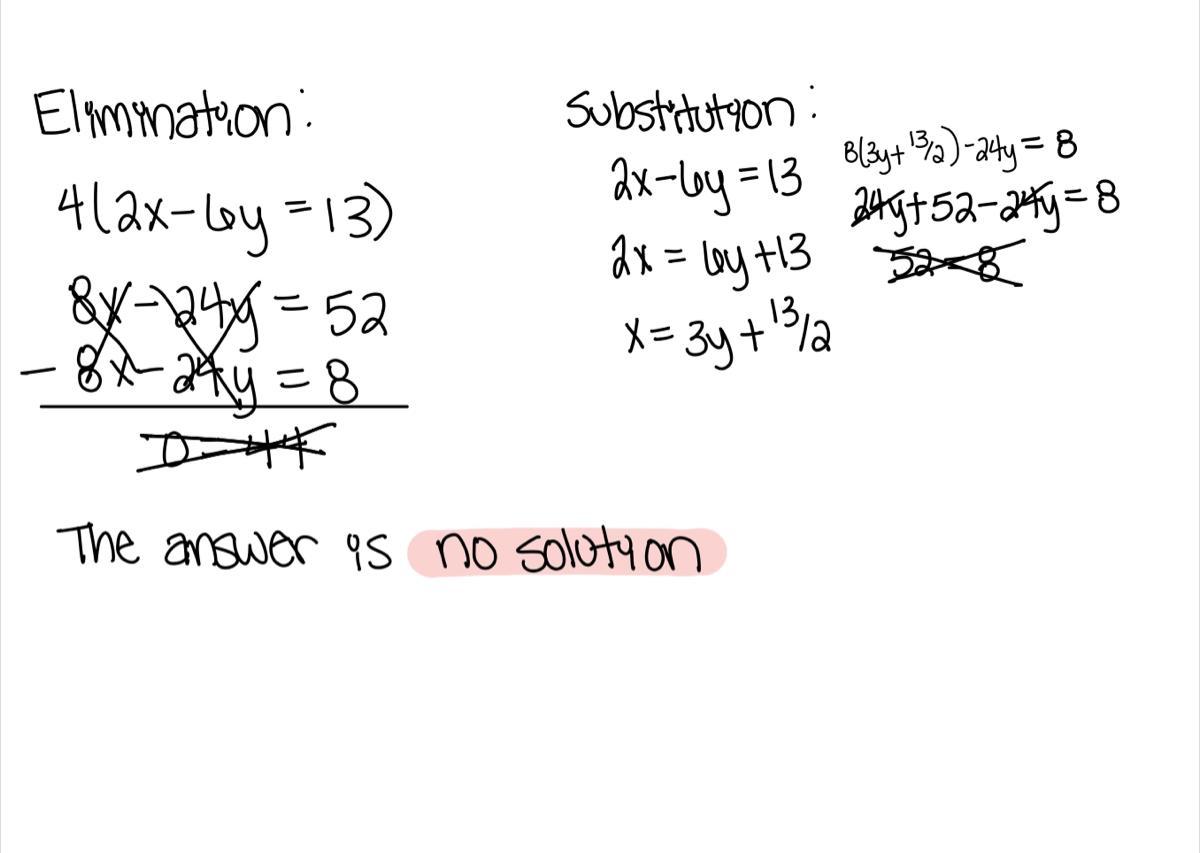 Elimination:
4(2x-6y=13)
8x-24y=52
- 8x-24y=8
0=44
Substitution:
2x-6y=13
2x=6y+13
x=3y+13/2
8(3y+13/2)-24y=8
24y+52-24y=8
52=8
The answer is no solution